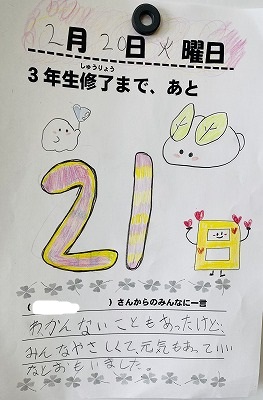 2月20日火曜日
しゅうりょう
3年生修了まで、あと
21日
( )さんからのみんなに一言
わかんないこともあったけど、
みんなやさしくて、元気もあっていい
なとおもいました。